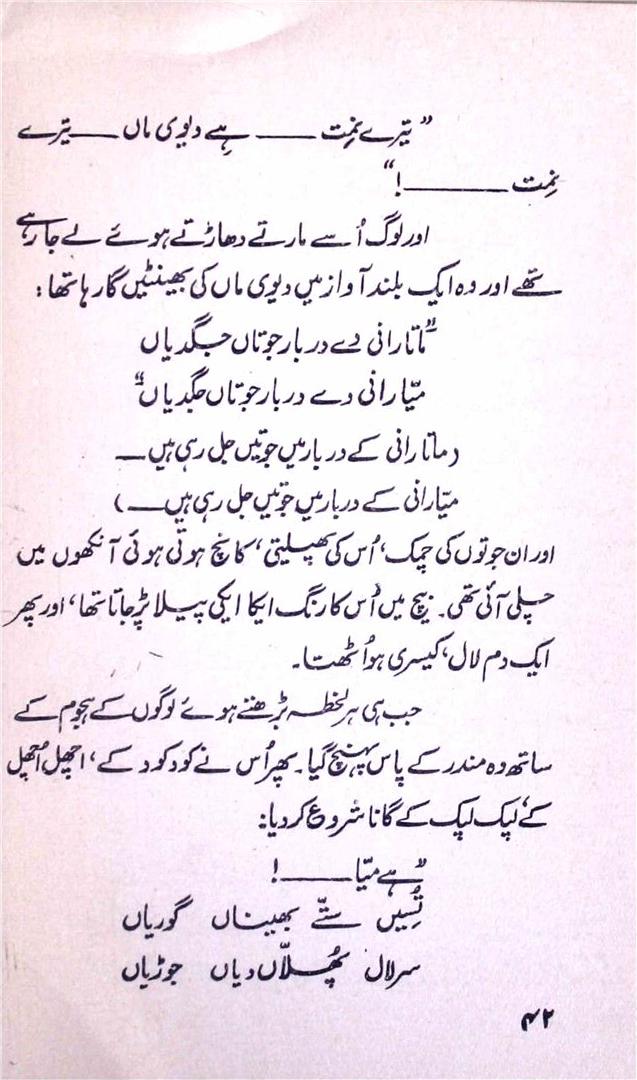 ”تیرے نمِت ——— ہے دیوی ماں —— تیرے
نمِت ———!“
اور لوگ اُسے مارتے دھاڑتے ہوئے لے جا رہے
تھے اور وہ ایک بلند آواز میں دیوی ماں کی بھینٹیں گا رہا تھا:
”ماتا رانی دے دربار جوتاں جگدیاں
میّا رانی دے دربار جوتاں جگدیاں“
(ماتا رانی کے دربار میں جوتیں جل رہی ہیں—
میّا رانی کے دربار میں جوتیں جل رہی ہیں—)
اور ان جوتوں کی چمک، اُس کی پھیلتی، کانچ ہوتی ہوئی آنکھوں میں
چلی آئی تھی۔ بیچ میں اُس کا رنگ ایکا ایکی پیلا پڑ جاتا تھا، اور پھر
ایک دم لال، کیسری ہو اُٹھتا۔
جب ہی ہر لحظہ بڑھتے ہوئے لوگوں کے ہجوم کے
ساتھ وہ مندر کے پاس پہنچ گیا۔ پھر اُس نے کود کود کے، اچھل اُچھل
کے، لپک لپک کے گانا شروع کر دیا:
”ہے میّا ———!
تُسیں ستّے بھیناں گوریاں
سر لال پھُلاّں دیاں جوڑیاں
۴۲